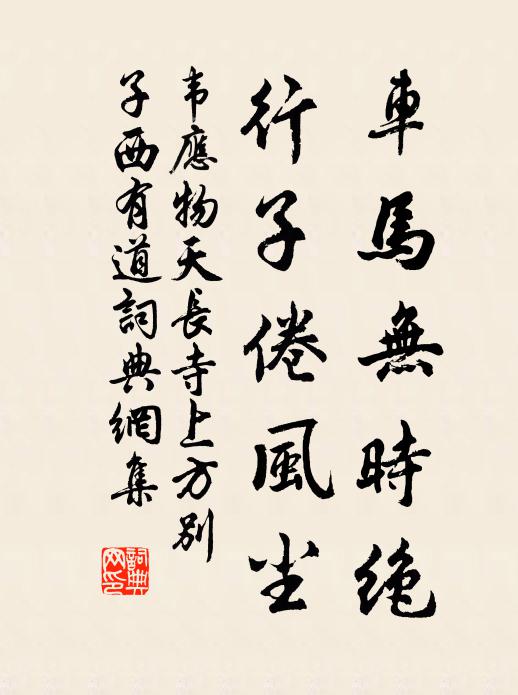 車馬無時絶
行子倦風尘
韦應物天長寺上方别
子西有道詞典網集
詞典网印